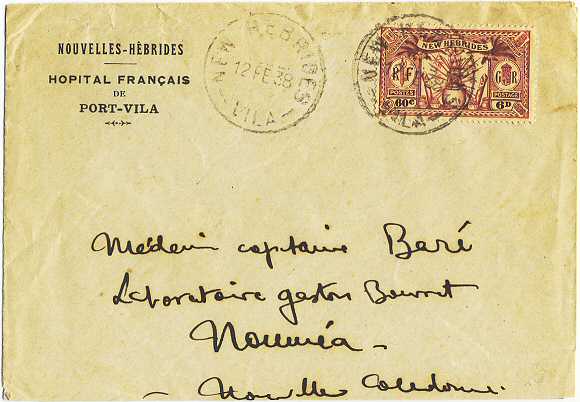 NOUVELLES-HÉBRIDES
HOPITAL FRANÇAIS
DE
PORT-VILA
NEW HEBRIDES
12 FE 38
VILA
NEW
VILA
NEW HEBRIDES
RF
GR
POSTES
POSTAGE
60c
6D
Médecin capitaine Baré
Laboratoire gaston Bourret
Nouméa -
- Nouvelle Calédonie.